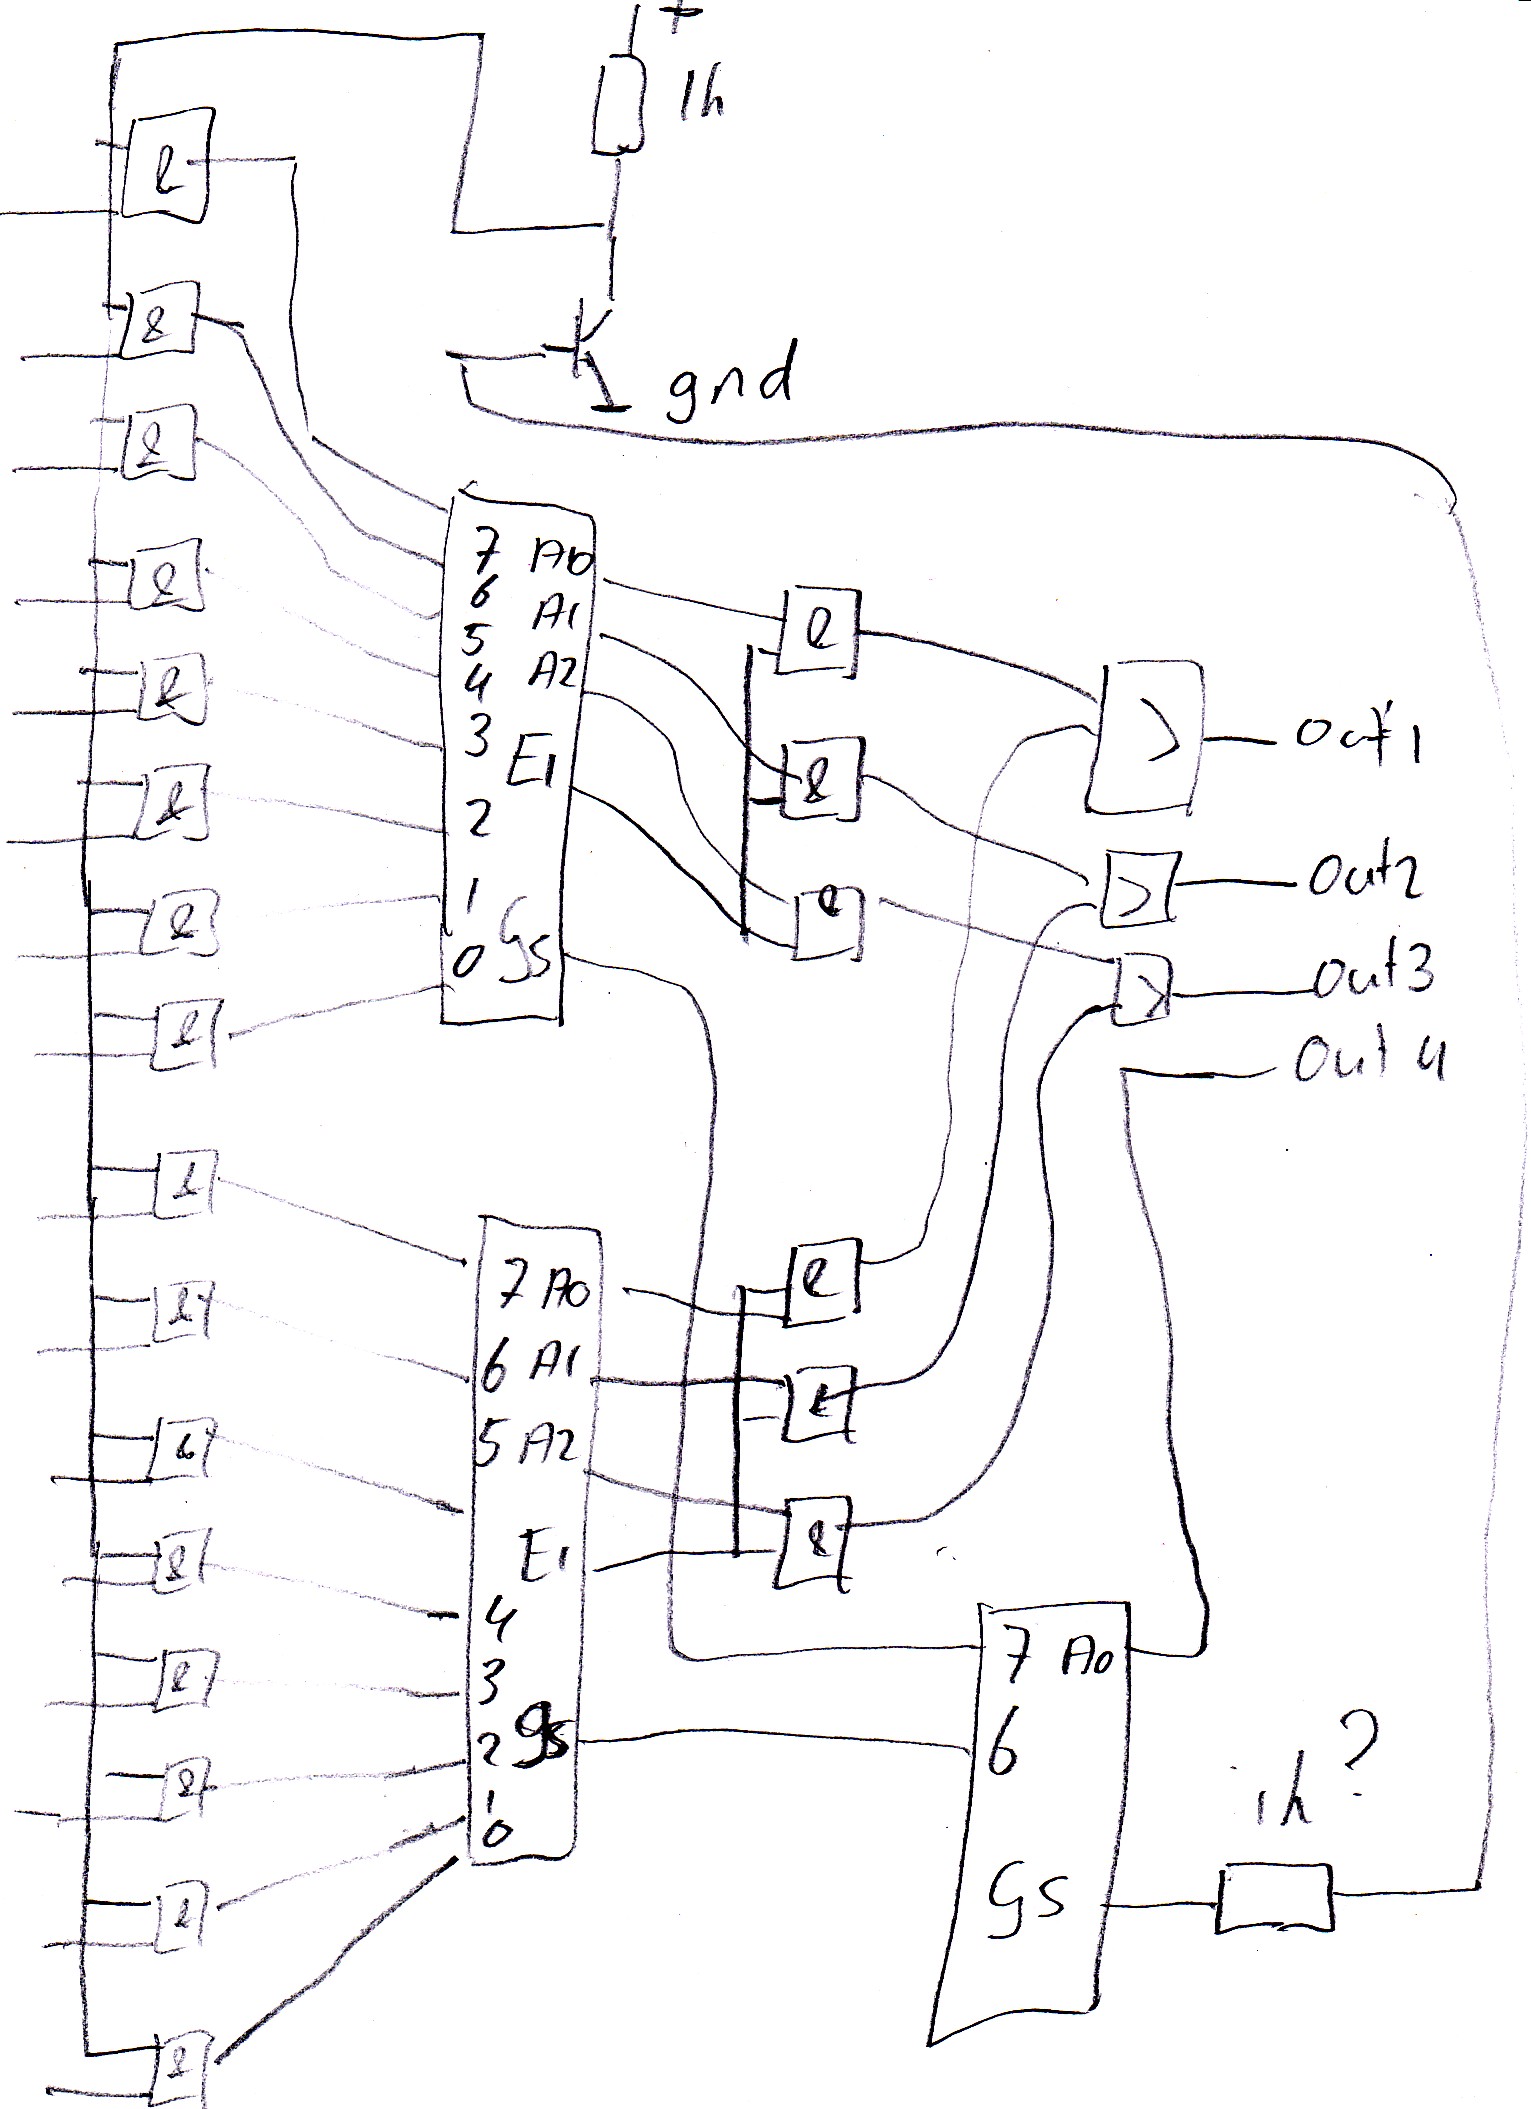 +
1h
&
&
gnd
&
7 A0
6
A1
&
5
A2
4
&
&
3
E1
Out1
&
2
&
Out2
&
1
&
0 GS
Out3
&
Out 4
&
&
7 A0
&
6 A1
&
5 A2
&
E1
&
&
4
7 A0
3
&
6
2 gs
?
&
1
1h
0
GS
&
&